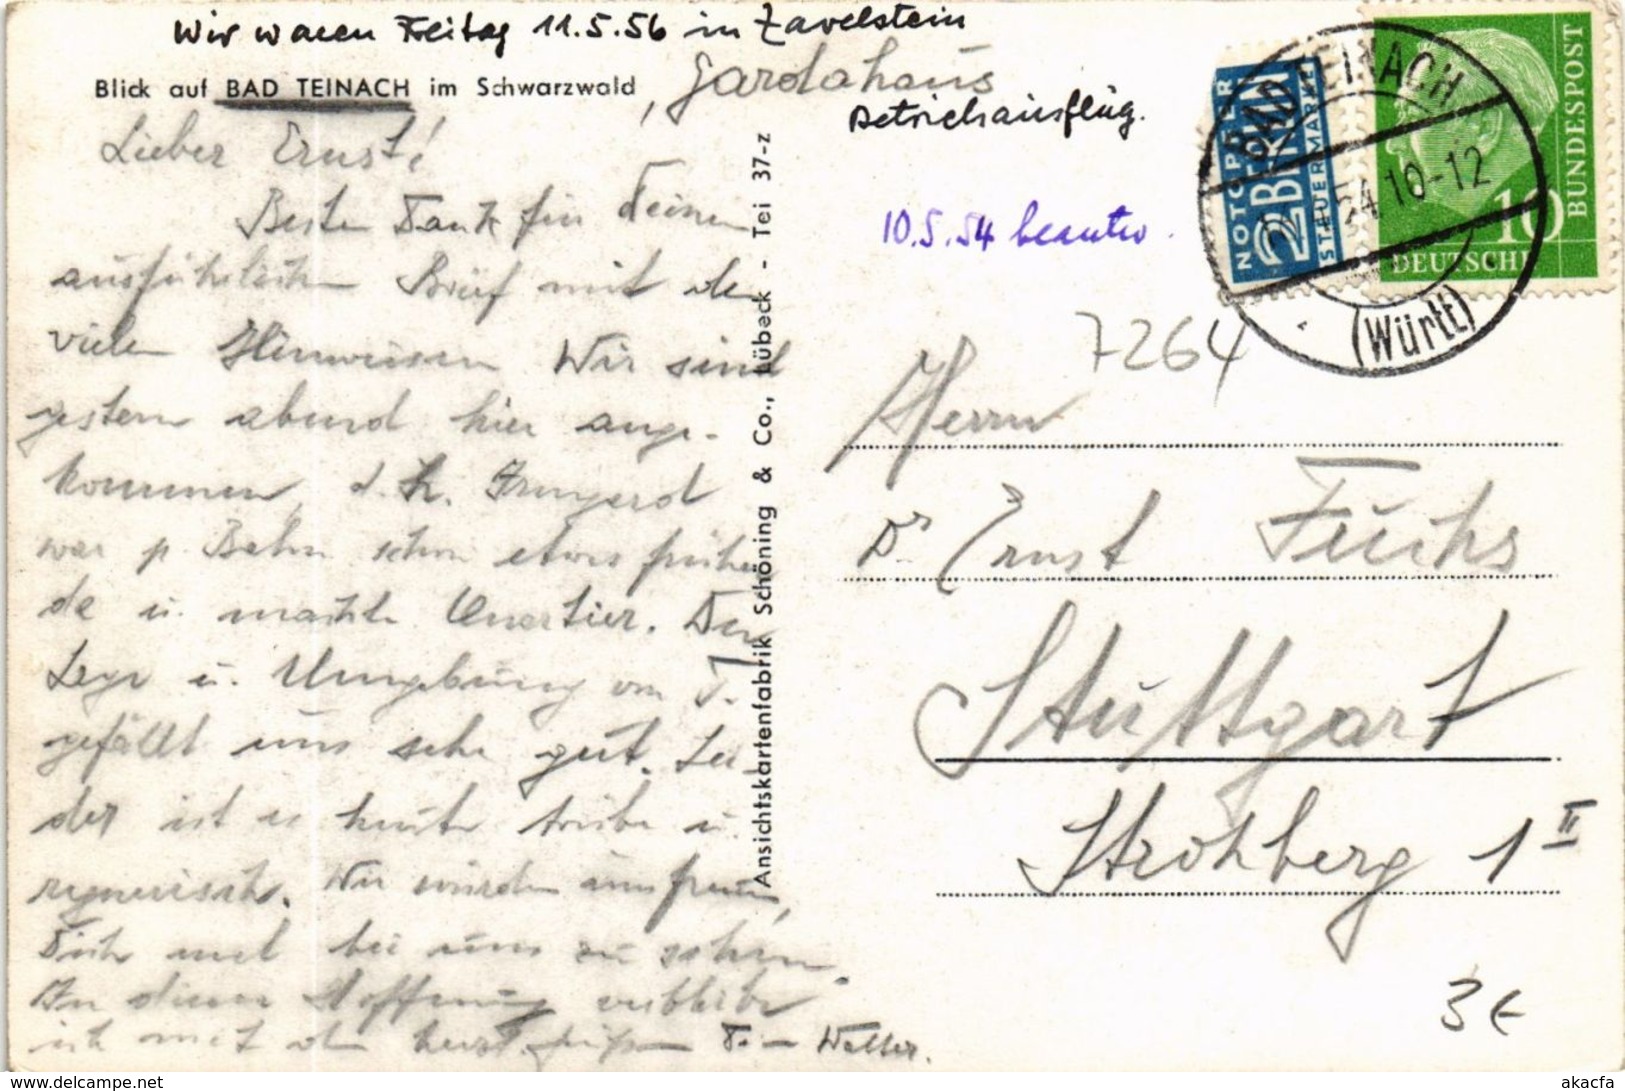 Wir waren Freitag 11.5.56 in Zavelstein
Gardahaus
Betriebsausflug.
Blick auf BAD TEINACH im Schwarzwald
Lieber Ernst!
Besten Dank für Deinen
ausführlichen Brief mit den
vielen Hinweisen Wir sind
gestern abend hier ange-
kommen, d. h. Irmgard
war p. Bahn schon etwas früher
da u. machte Quartier. Die
Lage u. Umgebung von T.
gefällt uns sehr gut. Lei-
der ist es heute trübe u.
regnerisch. Wir würden uns freuen,
Dich mal bei uns zu sehen.
In dieser Hoffnung verbleibe
ich mit den herzl. Grüßen Dein Walter.
Ansichtskartenfabrik Schöning & Co., Lübeck - Tei 37-z
10.5.54 beantw.
NOTOPFER
2 BERLIN
STEUERMARKE
BAD TEINACH
54 10-12
(Württ)
10
DEUTSCHE
BUNDESPOST
7264
Herrn
Dr Ernst Fuchs
Stuttgart
Strohberg 1 II
3€
https://www.delcampe.net
akacfa